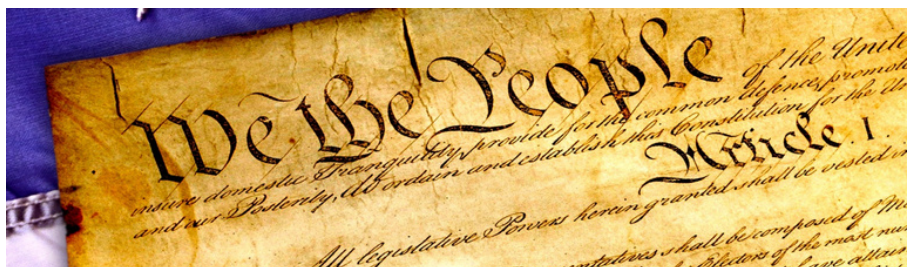 We the People of the Unite
insure domestic Tranquility, provide for the common defence, promote
and our Posterity, do ordain and establish this Constitution for the Un
Article. I.
All legislative Powers herein granted shall be vested in
entatives shall be composed of Me
Electors of the most num
have attain